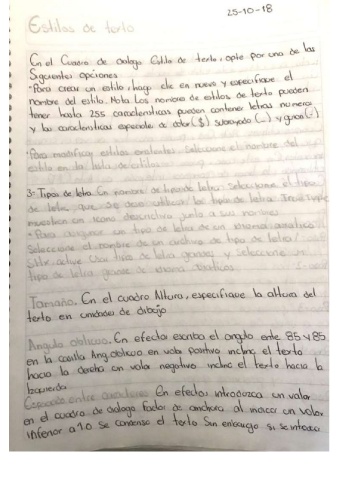 25-10-18
Estilos de texto
En el Cuadro de dialogo Estilo de texto, opte por una de las
Siguientes opciones
·Para crear un estilo, haga clic en nuevo y especifique el
nombre del estilo. Nota Los nombres de estilos de texto pueden
tener hasta 255 caracteristicas pueden contener letras numeros
y las caracteristicas especiale de dolar ($) subrayado (_) y guion (-)
·Para modificar estilos existentes Seleccione el nombre del
estilo en la lista de estilos
3- Tipos de letra. En nombre de tipo de letra Seleccione el tipo
de letra que se dese utilizar los tipos de letra TrueType
muestran un icono descriptivo junto a sus nombres
un tipo de letra de un idioma asiatico
Seleccione el nombre de un archivo de tipo de letra
active Usar tipo de letra grande y seleccione un
tipo de letra grande de idioma
Tamaño. En el cuadro Altura, especifique la altura del
texto en unidades de dibujo
Angulo oblicuo. En efectos escriba el angulo ente 85 y 85
en la casilla Ang.oblicuo en valo positivo inclina el texto
hacia la derha un valo negativo incline el texto hacia la
Izquierda
entre En efectos introduzca un valor
en el cuadro de dialogo factor de anchura al un valor
inferior a 1.0 Se condensa el texto Sin embargo si se introdu